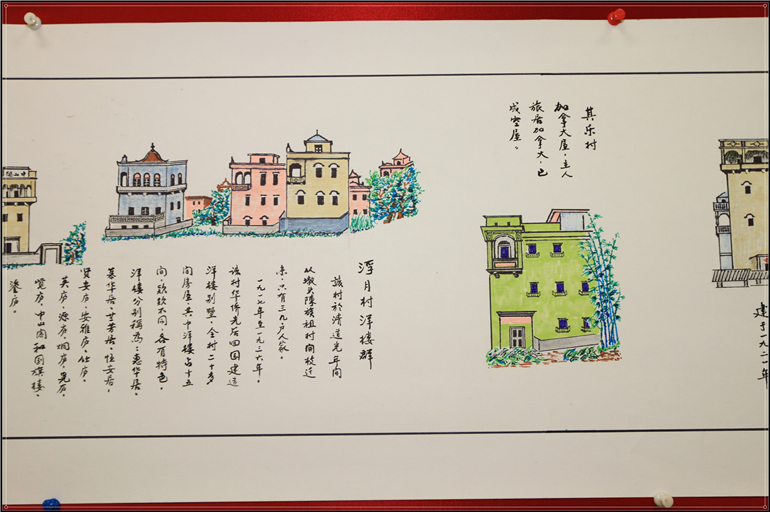 建于一九二一年
其乐村
加拿大屋，主人
旅居加拿大，已
成空屋。
浮月村洋楼群
该村於清道光年间
从墩头陈族祖村开枝迁
来，只有三九户人家。
一九一七年至一九三六年，
该村华侨先后回国建造
洋楼别墅，全村二十多
间房屋，其中洋楼占十五
间，款款不同，各有特色。
洋楼分别称为：惠华居、
慕华居、芳居、恒安居、
贤安庐、安雅庐、仕庐、
英庐、源庐、炯庐、晃庐、
觉庐、中山阁和国旗楼、
庐。